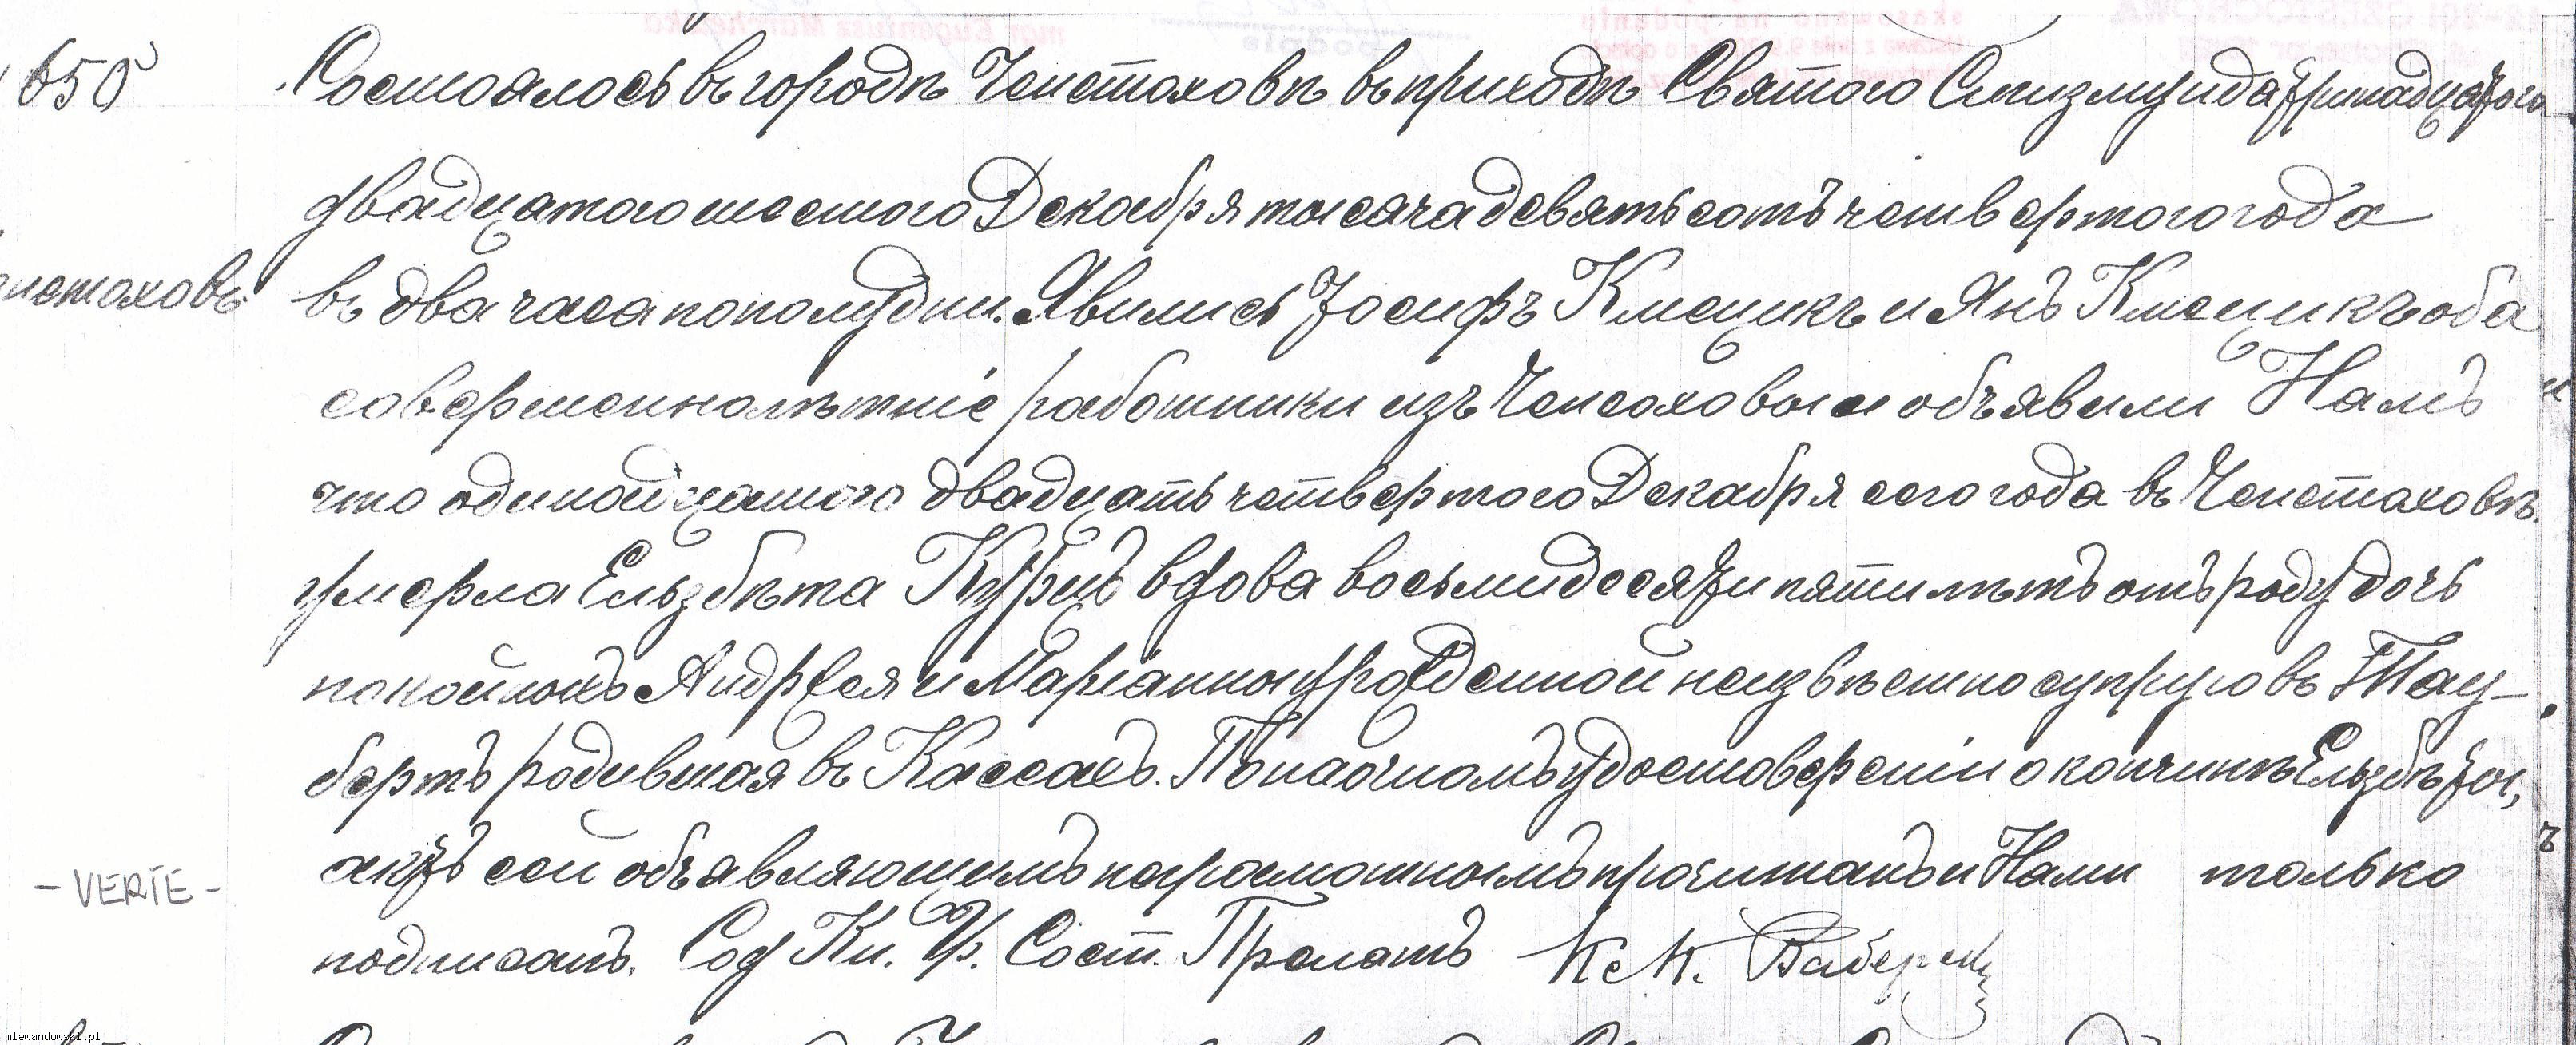 650
Состоялось въ городѣ Ченстоховѣ въ приходѣ Святого Сигизмунда тринадцатого
двадцатого шестого Декабря тысяча девятьсотъ четвертого года
нстоховъ въ два часа пополудни. Явились Іосифъ Клещикъ и Янъ Клещикъ оба
совершеннолѣтніе работники изъ Ченсоховы и объявили Намъ
что одинойцатого двадцать четвертого Декабря сего года въ Ченстоховѣ
умерла Ельзбѣта вдова восьмидесяти пяти лѣтъ отъ роду дочь
покойныхъ Андрея и Маріанны урожденной неизвѣстно супруговъ Тау-
бертъ родившая въ Кассахъ. По наочномъ удостовереніи о кончинѣ Ельзбѣты,
актъ сей объявляющимъ неграмотнымъ прочитанъ и Нами только
- VERTE -
подписанъ. Сод Кн. Гр. Сост. Прелатъ
mlewandowski.pl